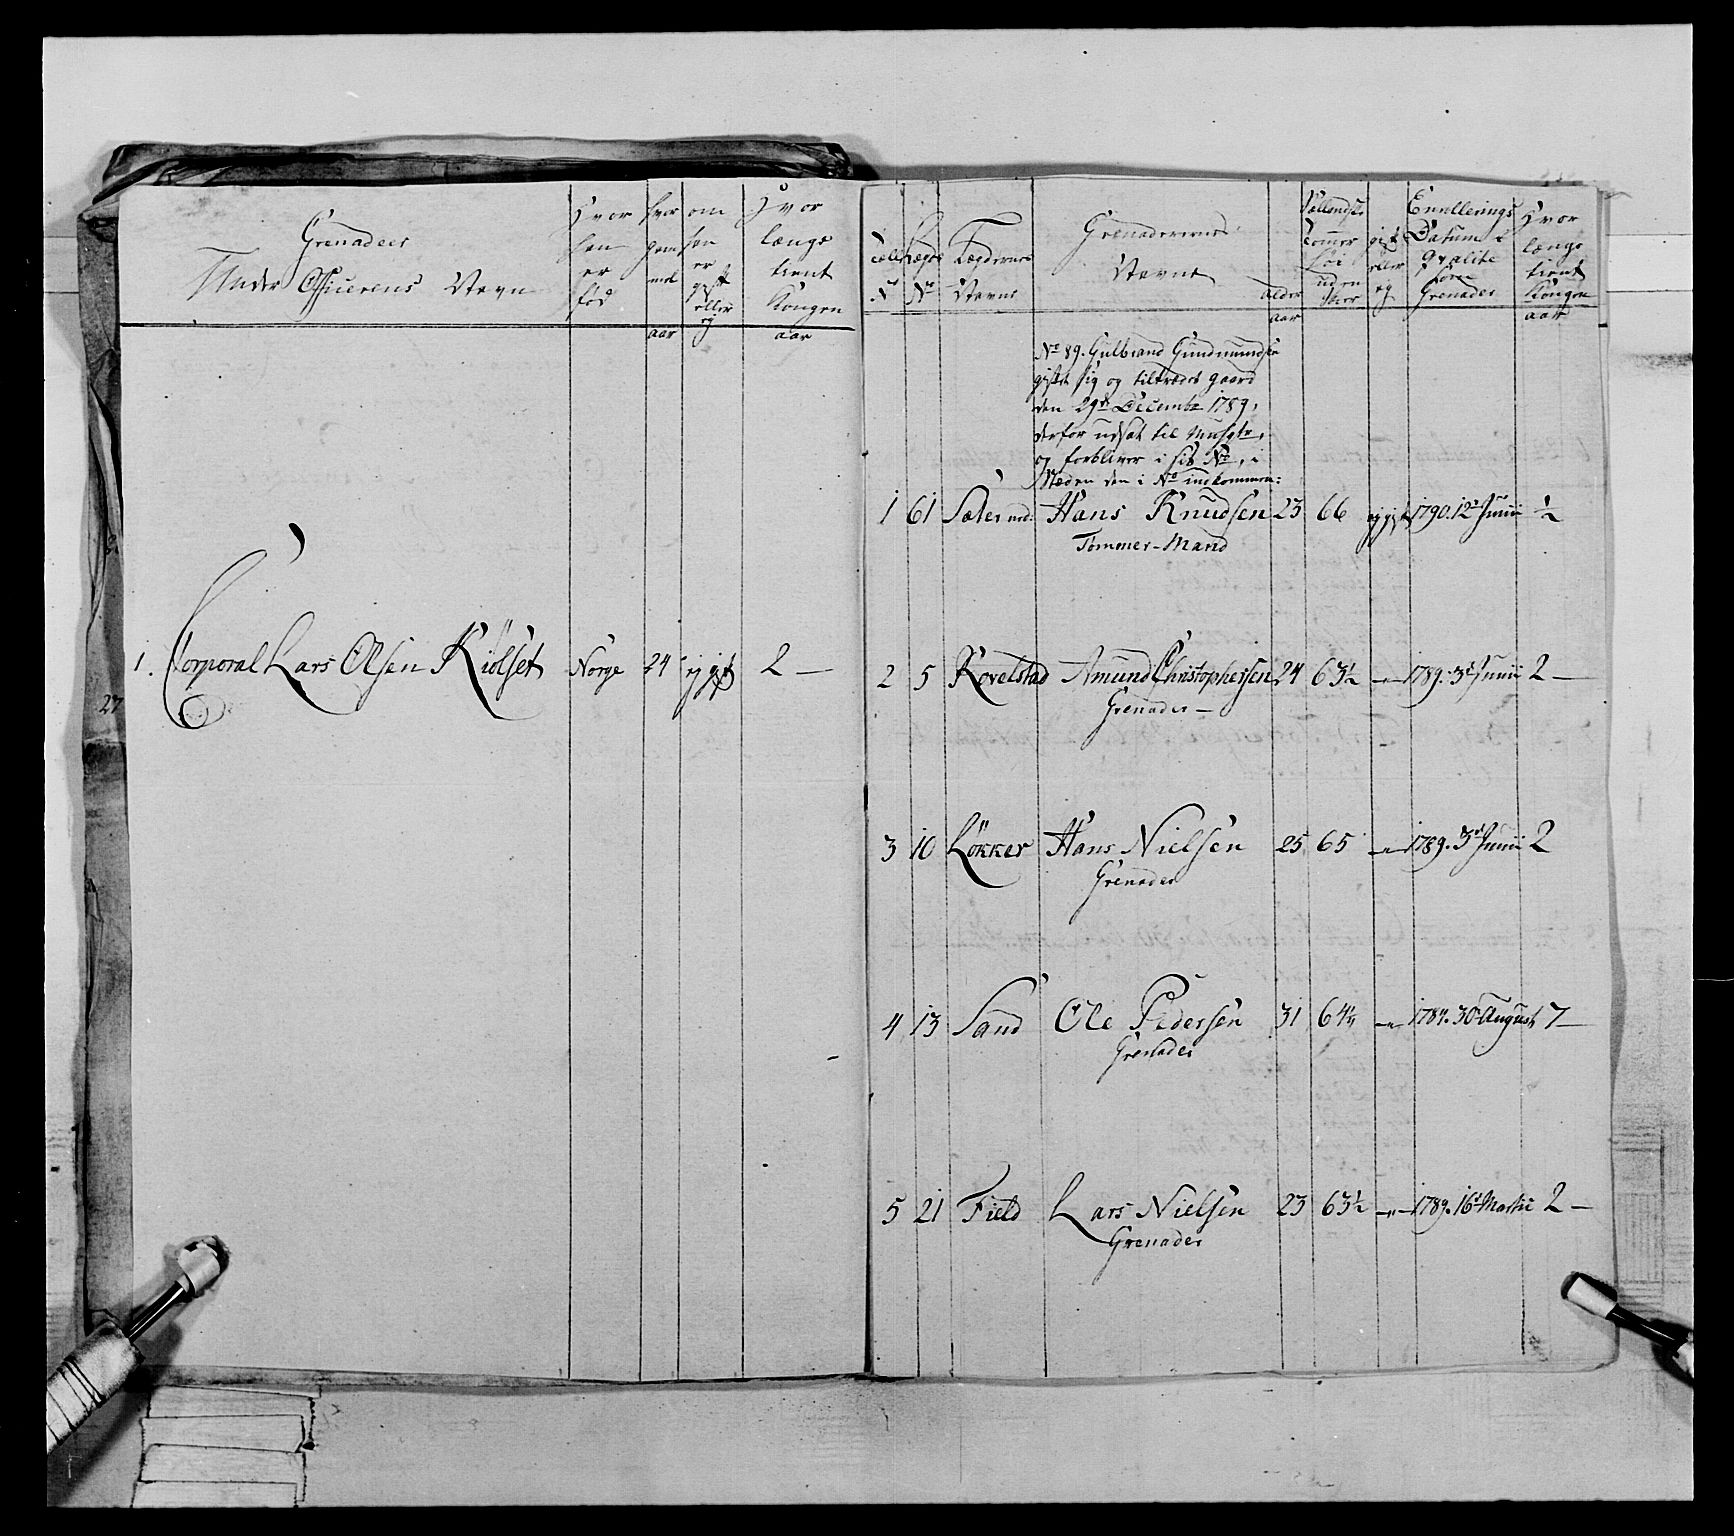 Grenadeer
Under Officerens Navn
Hvor han er fød
hvor gammel aar
om han er gift eller ej
Hvor længe tient Kongen aar
1. Corporal Lars Olsen Kiølset Norge 24 ej gift 2 —
27
No
Lægds No
Lægdernes Navne
Grenaderernes Navne
alder aar
Tommer
gift eller ej
Enrollerings Datum i qvalite som Grenader
Hvor længe tient Kongen aar
No 89. Gulbrand Gundmundsen
giftet sig og tiltrædet gaard
den 29de Decembr 1789,
derfor udsat til Musqtr,
og forbliver i sit No, i
Stæden den i No indkommen:
1 61 Sæter Hans Knudsen 23 66 ej gift 1790. 12te Junii ½
Tømmer-Mand
2 5 Røvelstad Amund Christophersen 24 63½ —"— 1789. 3de Junii 2 —
Grenader —
3 10 Løkker Hans Nielsen 25 65 —"— 1789. 3de Junii 2
Grenader
4 13 Sand Ole Pedersen 31 64¼ —"— 1784. 30 August 7 —
Grenader
5 21 Field Lars Nielsen 23 63½ —"— 1789. 16de Martii 2 —
Grenader